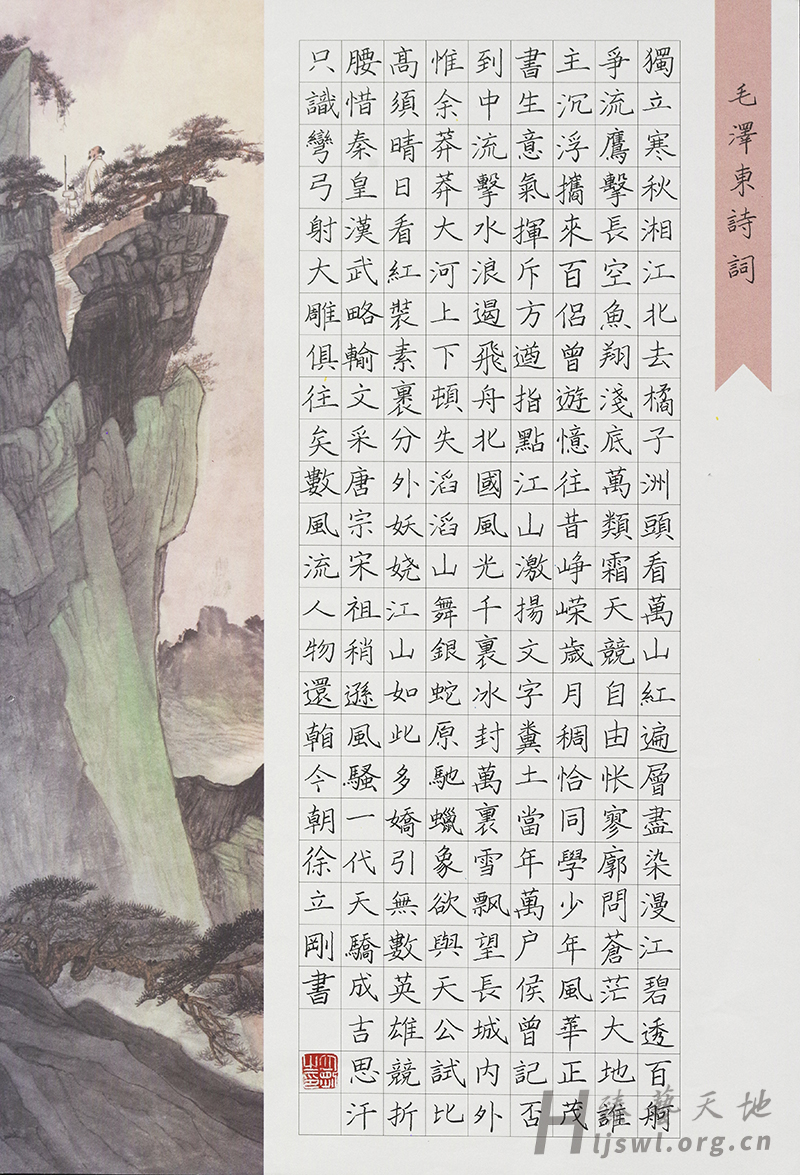 毛澤東詩詞
獨立寒秋湘江北去橘子洲頭看萬山紅遍層盡染漫江碧透百舸
爭流鷹擊長空魚翔淺底萬類霜天競自由怅寥廓問蒼茫大地誰
主沉浮攜來百侣曾遊憶往昔崢嶸歲月稠恰同學少年風華正茂
書生意氣揮斥方遒指點江山激揚文字糞土當年萬户侯曾記否
到中流擊水浪遏飛舟北國風光千裏冰封萬裏雪飘望長城内外
惟余莽莽大河上下頓失滔滔山舞銀蛇原馳蠟象欲與天公試比
高須晴日看紅裝素裹分外妖娆江山如此多嬌引無數英雄競折
腰惜秦皇漢武略輸文采唐宗宋祖稍遜風騷一代天驕成吉思汗
只識彎弓射大雕俱往矣數風流人物還今朝徐立剛書
臻藝天地
Hljswl.org.cn